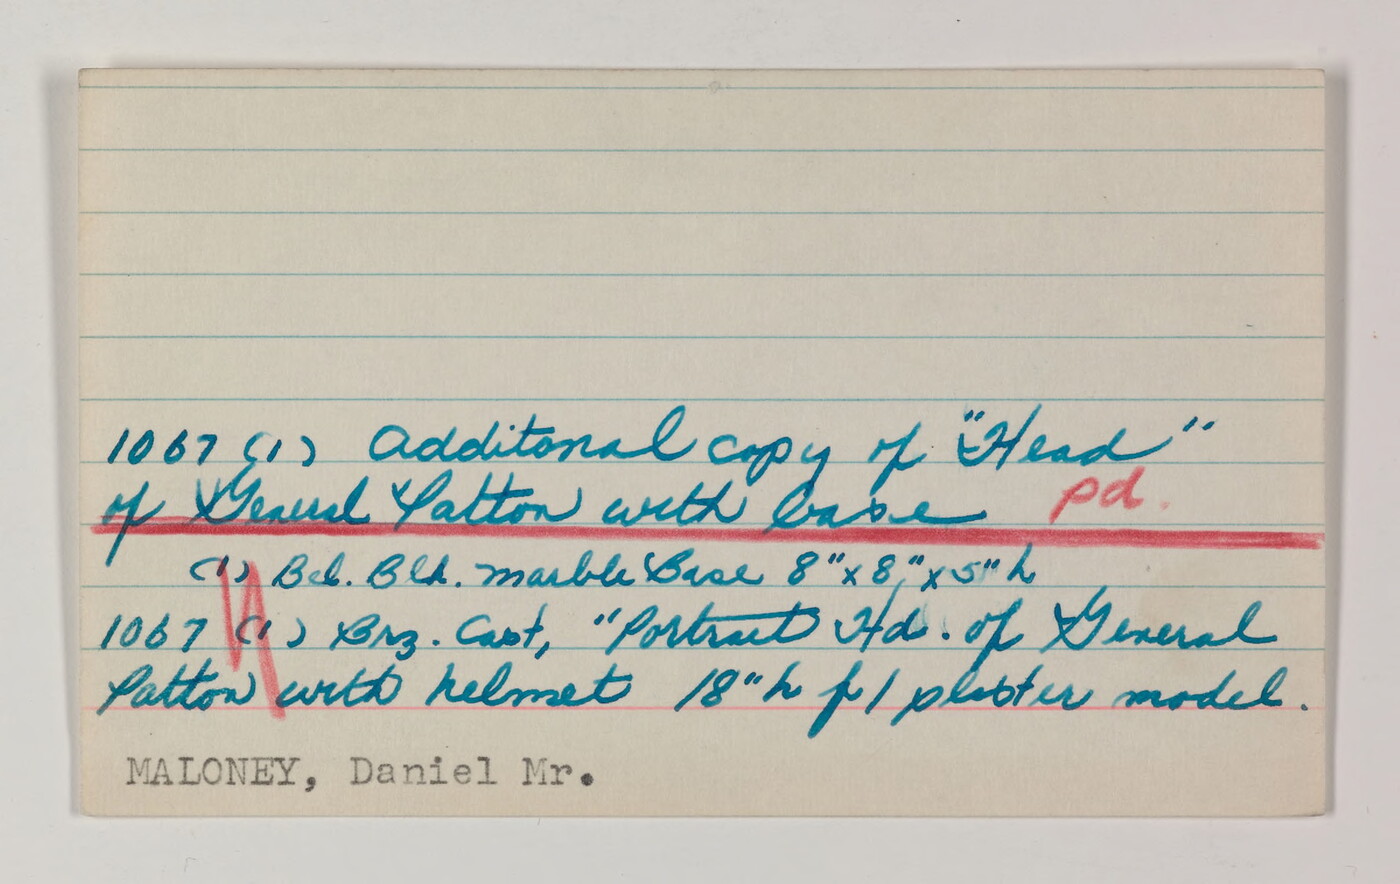 1067 (1) Additonal copy of "Head"
of General Patton with base pd.
(1) Bel. Blk. marble Base 8"x8"x5"h
1067 (1) Brz. Cast, "Portrait Hd. of General
Patton with helmet 18"h f/1 plaster model.
MALONEY, Daniel Mr.